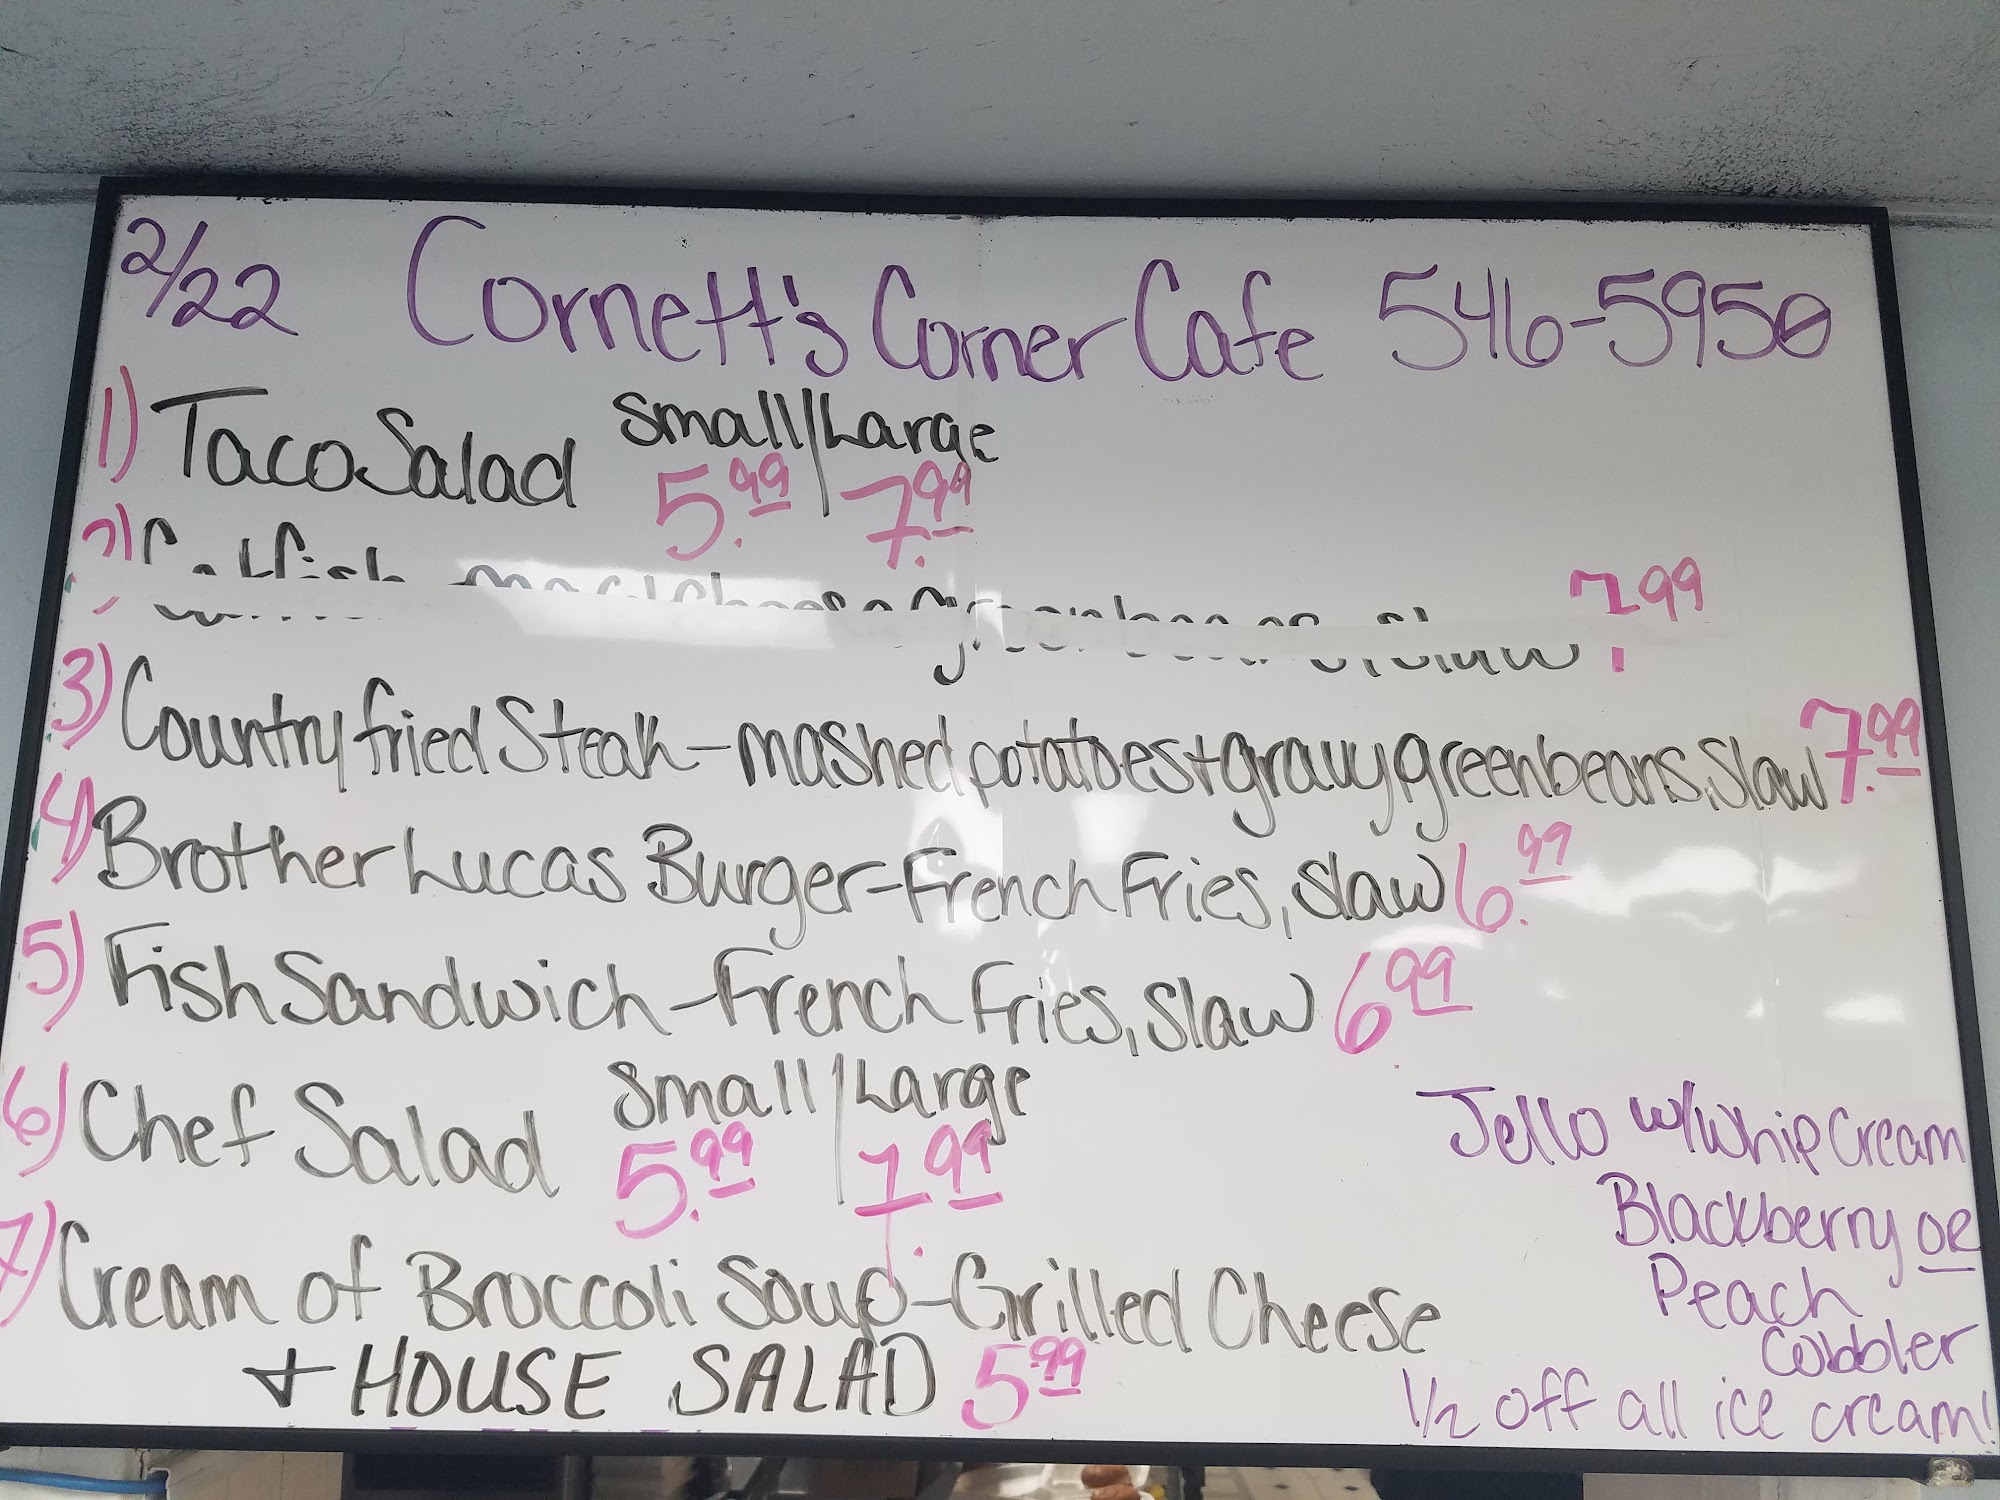 2/22 Cornett's Corner Cafe 546-5950
1) Taco Salad Small/Large
5.99 7.99
2) Catfish mac & cheese greenbeans, slaw 7.99
3) Country fried Steak - mashed potatoes + gravy greenbeans, slaw 7.99
4) Brother Lucas Burger - French Fries, slaw 6.99
5) Fish Sandwich - French Fries, slaw 6.99
6) Chef Salad Small/Large
5.99 7.99
7) Cream of Broccoli Soup - Grilled Cheese
+ HOUSE SALAD 5.99
Jello w/whip Cream
Blackberry OR
Peach
Cobbler
1/2 off all ice cream!